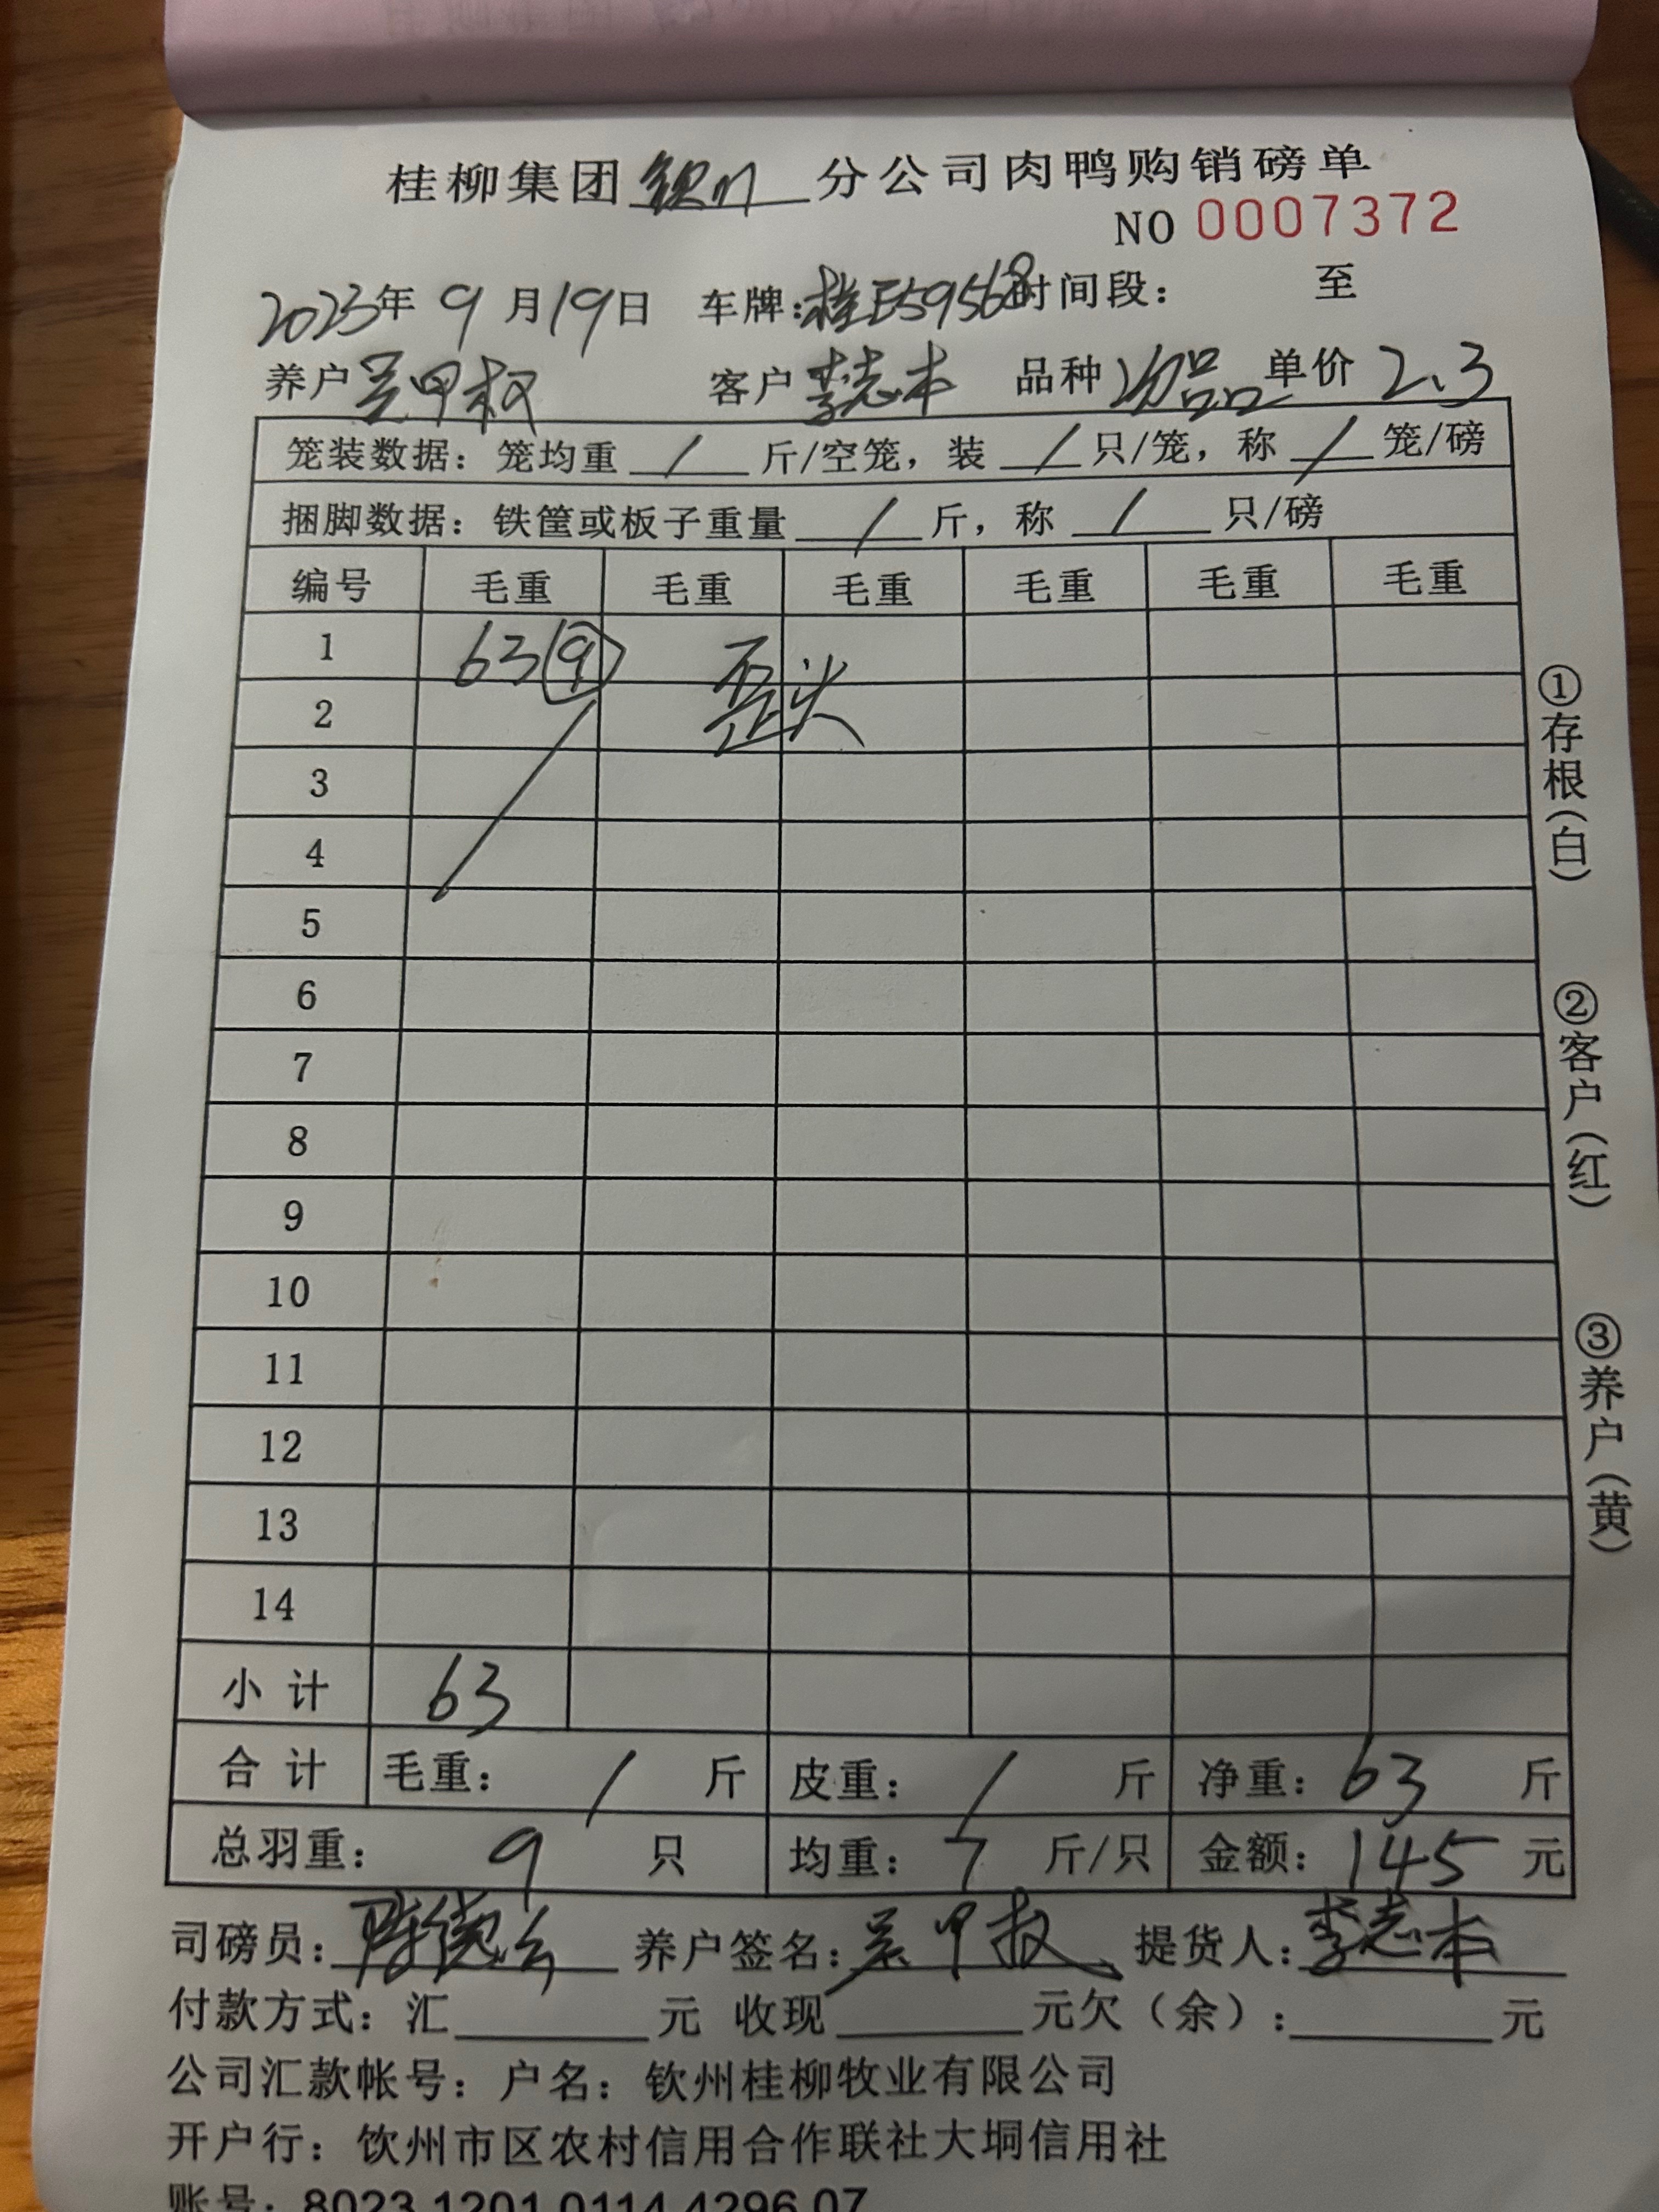 桂柳集团钦州分公司肉鸭购销磅单
NO 0007372
2023年9月19日 车牌:桂E59568时间段: 至
养户吴甲权 客户李志本 品种次品单价2.3
笼装数据:笼均重/斤/空笼,装/只/笼,称/笼/磅
捆脚数据:铁筐或板子重量/斤,称/只/磅
编号 毛重 毛重 毛重 毛重 毛重 毛重
1 63(9) 歪头
2
3
4
5
6
7
8
9
10
11
12
13
14
小计 63
合计 毛重:/斤 皮重:/斤 净重:63斤
总羽重:9只 均重:7斤/只 金额:145元
司磅员:陈德 养户签名:吴甲权 提货人:李志本
付款方式:汇 元 收现 元欠(余): 元
公司汇款帐号:户名:钦州桂柳牧业有限公司
开户行:钦州市区农村信用合作联社大垌信用社
账号:8023 1201 0114 4296 07
①存根(白)
②客户(红)
③养户(黄)